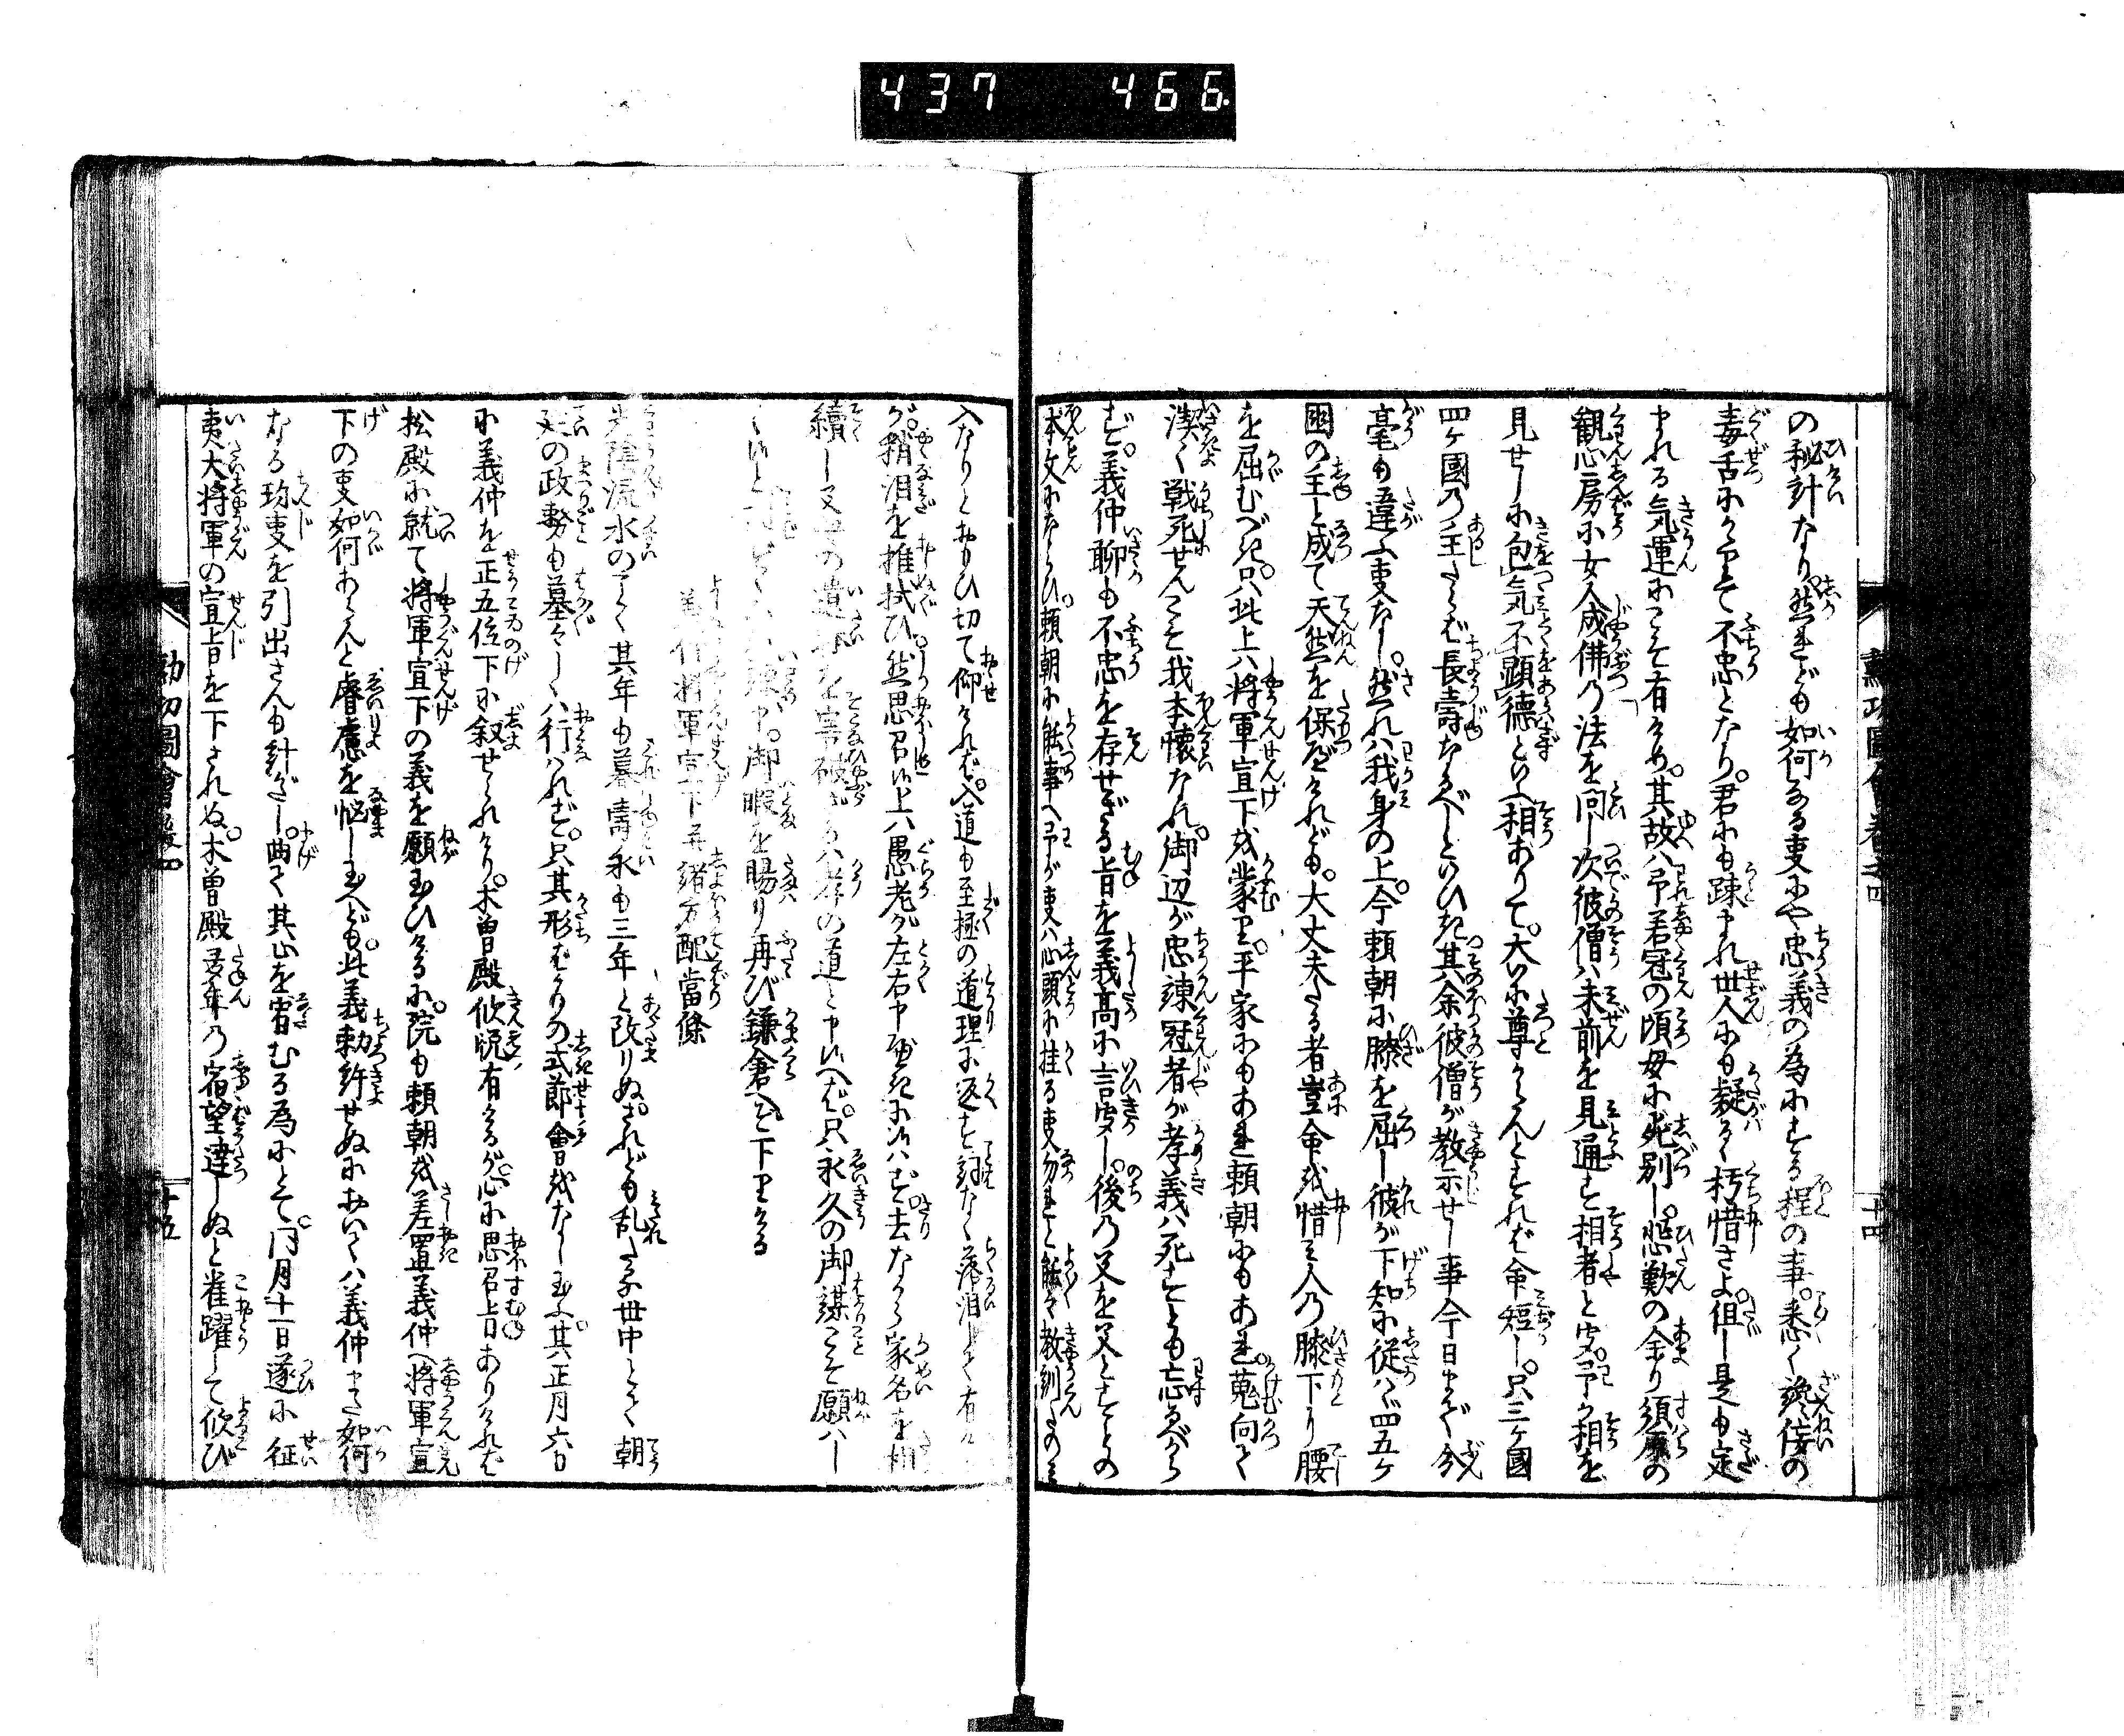 437 466
の秘計なり然れども如何なる叓にや忠義の為にする程の事悉く讒佞の
毒舌にかゝりて不忠となり。君にも疎まれ世人にも疑るゝ朽惜さよ俎し是も定
まれる気運にこそ有らめ。其故ハ予若冠の頃母に死別し。悲歎の余り須原の
観心房に女人成佛の法を問し次彼僧ハ未前を見通す相者と聞。予が相を
見せしに包気不顕徳といへ相ありて。大に尊からんとすれば命短し。只三ケ國
四ケ國の主たらば長壽なるべしといひき其余彼僧が教示せし事今日まで分
毫も違ふ叓なし。然れハ我身の上。今頼朝に膝を屈し彼が下知に従ハゞ四五ケ
國の主と成て天然を保べけれども。大丈夫たる者豈命を惜ミ人の膝下り腰
を屈むべき。只此上ハ将軍宣下を蒙り。平家にもあれ頼朝にもあれ。蒐向て
潔く戦死せんこそ我本懐なれ。御辺が忠諫冠者が孝義ハ死すとも忘るべから
ず。義仲聊も不忠を存せざる旨を義高に言聞し。後の父を父とすとの
本文にならひ。頼朝に能事へ予が叓ハ心頭に挂る叓勿れと能々教訓たのミ
入なりとおもひ切て仰けれバ。入道も至極の道理に返す詞なく落泪して有
が。稍泪を推拭ひ然思召候上ハ愚老が左右申べきに候ハず。去ながら家名を相
續し父世の遺を害破ざるハ孝の道と申候へバ。只永久の御謀こそ願ハし
く候と諫申。御暇を賜り再び鎌倉へと下りける
義仲将軍宣下并諸方配當條
光陰流水のごとく其年も暮壽永も三年と改りぬ。されども乱たる世中とて朝
廷の政務も墓々しくハ行ハれず。只其形ばかりの式節會をなし玉ふ。其正月六日
に義仲を正五位下に叙せられけり。木曽殿欣悦有けるが。心に思召旨ありけれバ
松殿に就て将軍宣下の義を願玉ひけるに。院も頼朝を差置義仲へ将軍宣
下の叓如何あらんと睿慮を悩し玉へども。此義勅許せぬにおいてハ義仲また如何
なる珍叓を引出さんも計がたし。曲て其心を宥むる為にとて。同月十一日遂に征
夷大将軍の宣旨を下されぬ。木曽殿多年の宿望達しぬと雀躍して欣び
勲功圖會後四
十五